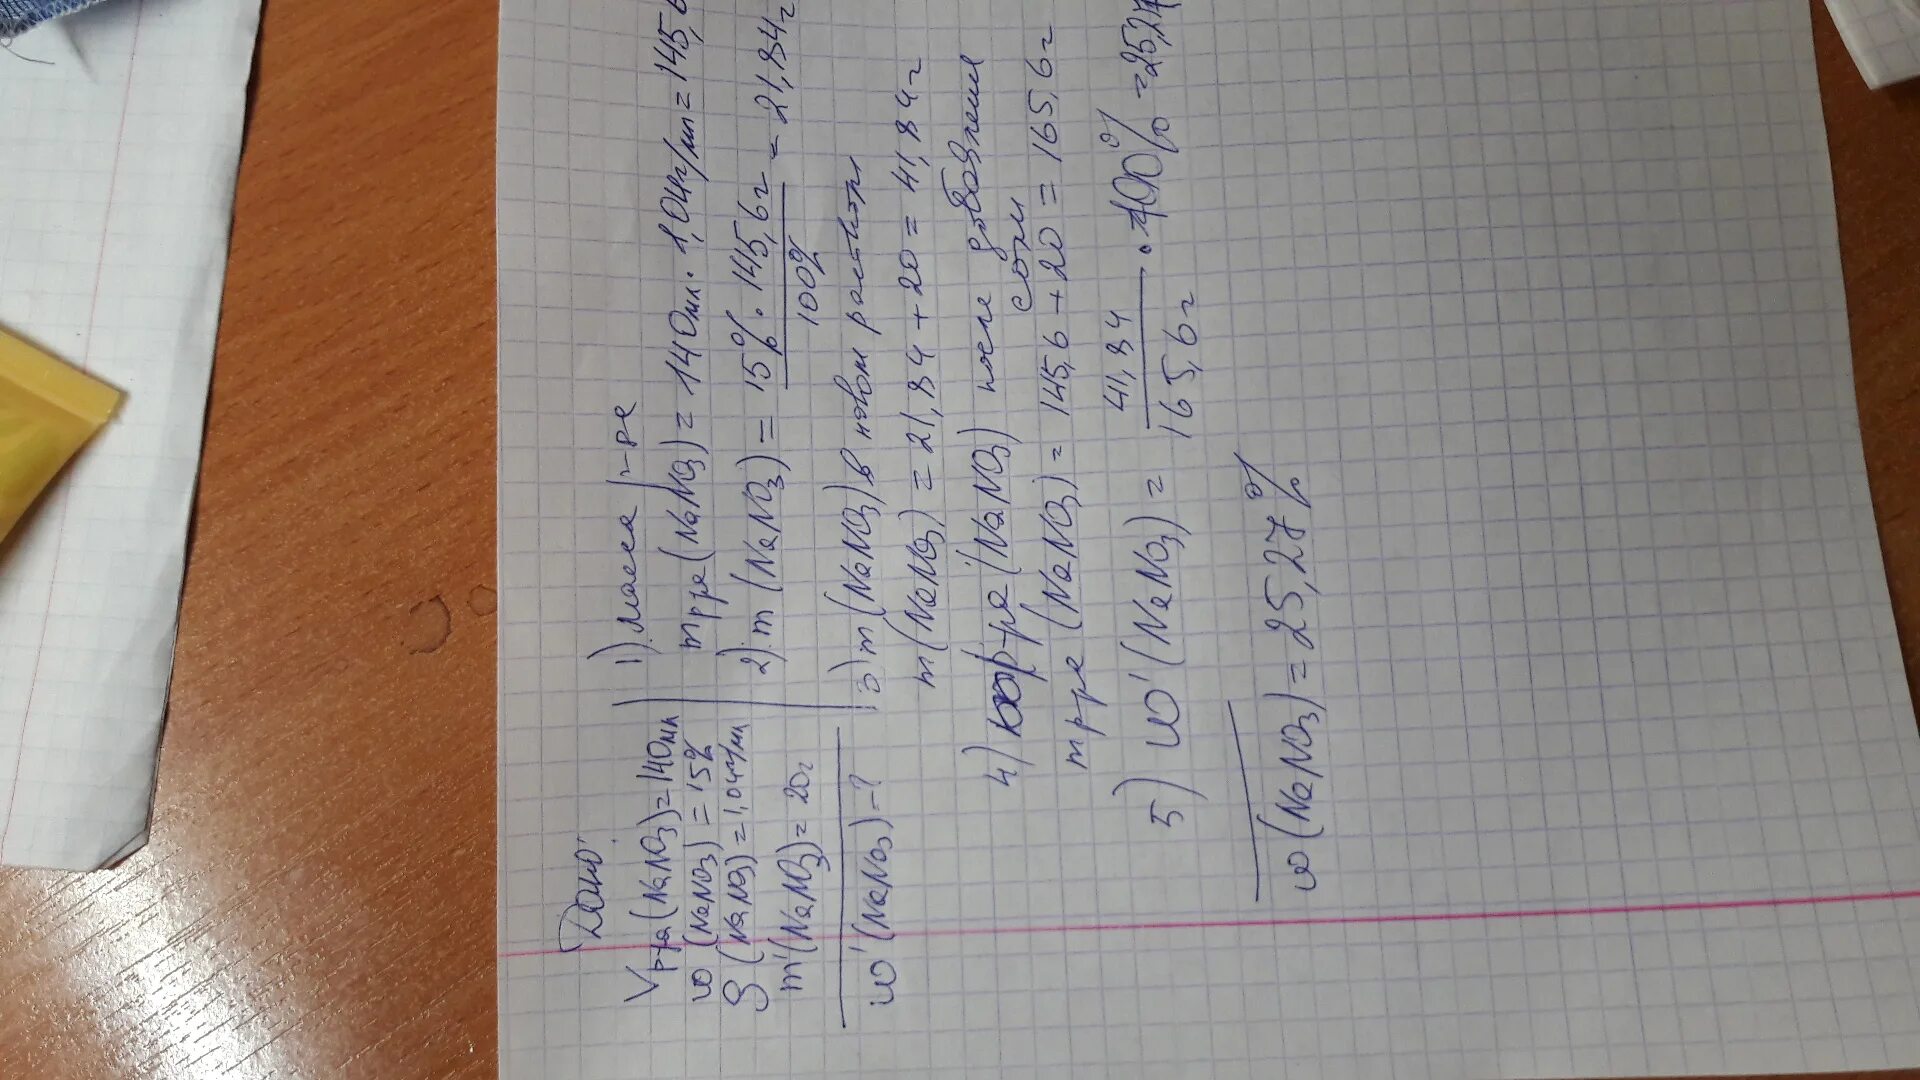 Дано:
Vр-ра(NaNO3)=140мл
ω(NaNO3)=15%
ρ(NaNO3)=1,04г/мл
m'(NaNO3)=20г
ω'(NaNO3)-?
1) масса р-ра
mр-ра(NaNO3)=140мл·1,04г/мл=145,6
2) m(NaNO3)=15%·145,6г/100%=21,84г
3) m(NaNO3) в новом растворе
m(NaNO3)=21,84+20=41,84г
4) р-ра (NaNO3) после добавления соли
mр-ра(NaNO3)=145,6+20=165,6г
5) ω'(NaNO3)=41,84/165,6г·100%=25,27
ω(NaNO3)=25,27%